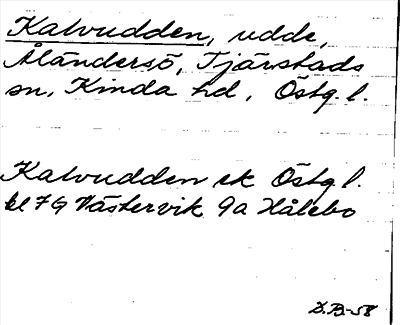 Kalvudden, udde,
Åländersö, Tjärstads
sn, Kinda hd, Östg. l.
Kalvudden ek Östg l.
bl 7G Västervik 9a Hålebo
D.B.-58